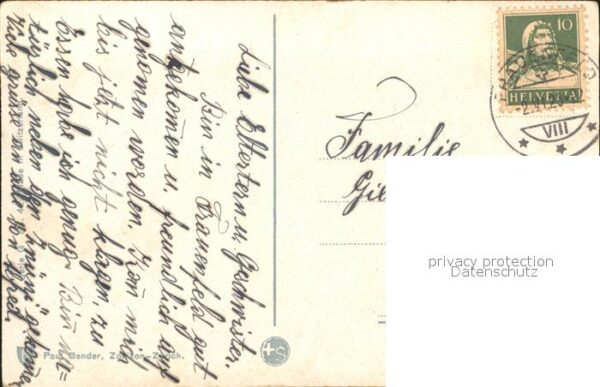 Liebe Elterern u. Geschwister.
Bin in Frauenfeld gut
angekomen u. freundlich auf
genomen worden. Kan mich
bis jetzt nicht klagen, zu
Essen habe ich genug. Bin na=
türlich neben den
Viele grüsse an alle von Alfred.
Paul Bender, Zollikon-Zürich.
S
Familie
10
HELVETIA
VIII
privacy protection
Datenschutz